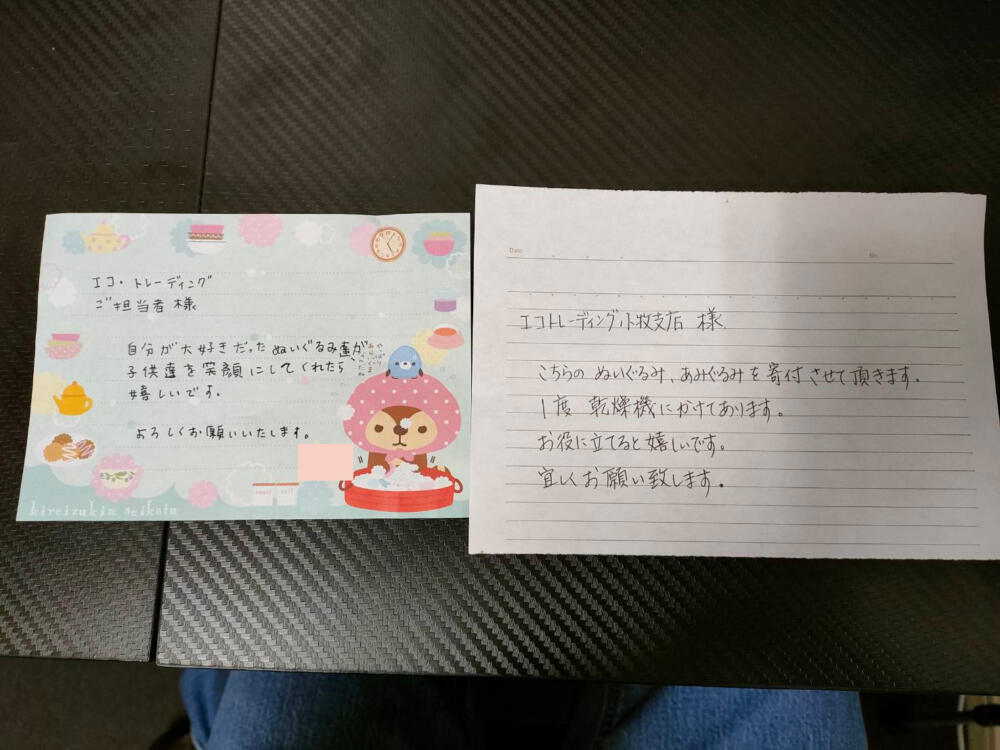 エコ・トレーディング
ご担当者様
自分が大好きだったぬいぐるみ達が、
子供達を笑顔にしてくれたら
嬉しいです。
よろしくお願いいたします。
kireizukin seikatu
Date
No.
エコトレーディング小牧支店 様
こちらの ぬいぐるみ、あみぐるみを寄付させて頂きます。
1度 乾燥機にかけてあります。
お役に立てると嬉しいです。
宜しくお願い致します。